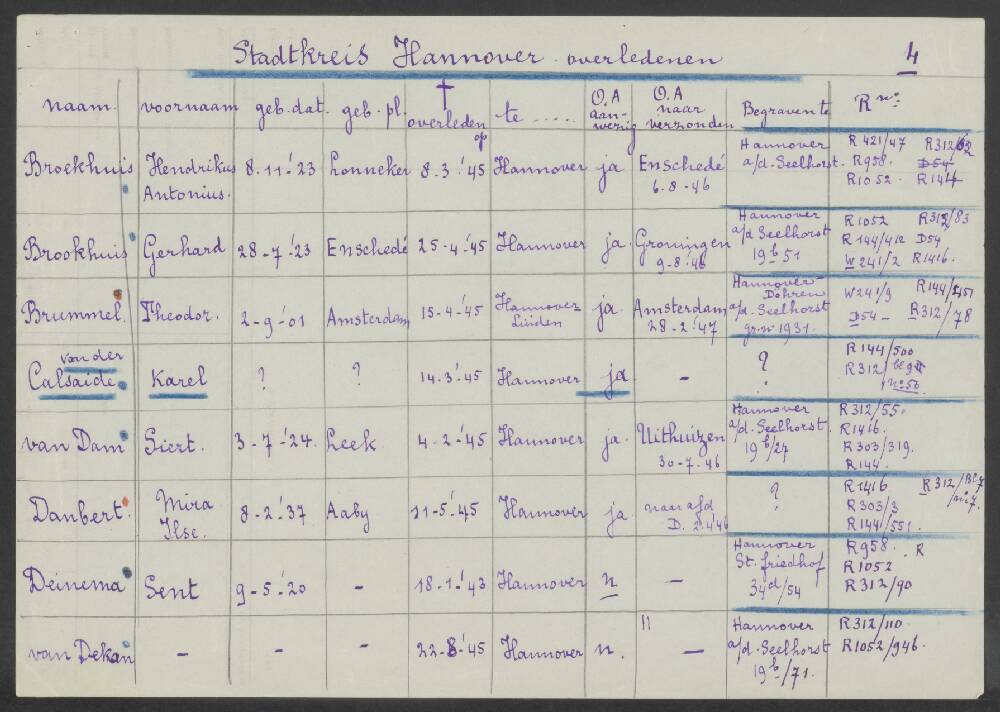 Stadtkreis Hannover. overledenen 4
naam. voornaam geb. dat. geb. pl. † overleden op te .... O.A aanwezig O.A naar verzonden Begraven te R nos
Broekhuis Hendrikus Antonius. 8-11-'23 Lonneker 8-3-'45 Hannover ja Enschedé 6-8-46 Hannover a/d. Seelhorst. R 421/47 R958. R1052 R312/62 D54 R144
Brookhuis Gerhard 28-7-'23 Enschedé 25-4-'45 Hannover ja. Groningen 9-8-'46 Hannover a/d Seelhorst 19b51 R1052 R144/412 W241/2 R312/83 D54 R1416.
Brummel. Theodor. 2-9-'01 Amsterdam 15-4-'45 Hannover-Linden ja. Amsterdam 28-2-'47 Hannover-Döhren a/d. Seelhorst gr. no 1931. W241/9 D54 - R144/551 R312/78
van der Calsaide Karel ? ? 14-3-'45 Hannover ja - ? R144/500 R312 no 50
van Dam Siert. 3-7-'24. Leek. 4-2-'45 Hannover ja. Uithuizen 30-7-46 Hannover a/d. Seelhorst. 19b/27 R312/55. R1416. R303/319. R144.
Danbert. Mira Ilse. 8-2-'37 Aaby 11-5-'45 Hannover ja naar afd D. 2-4-'46 ? R1416 R303/3 R144/551.
Deinema Sent 9-5-'20 - 18-1-'43 Hannover n - Hannover St. friedhof 34d/54 R958. R R1052 R312/90
van Dekan - - - 22-8-'45 Hannover n. " - Hannover a/d. Seelhorst 19b/71. R312/110 R1052/946.